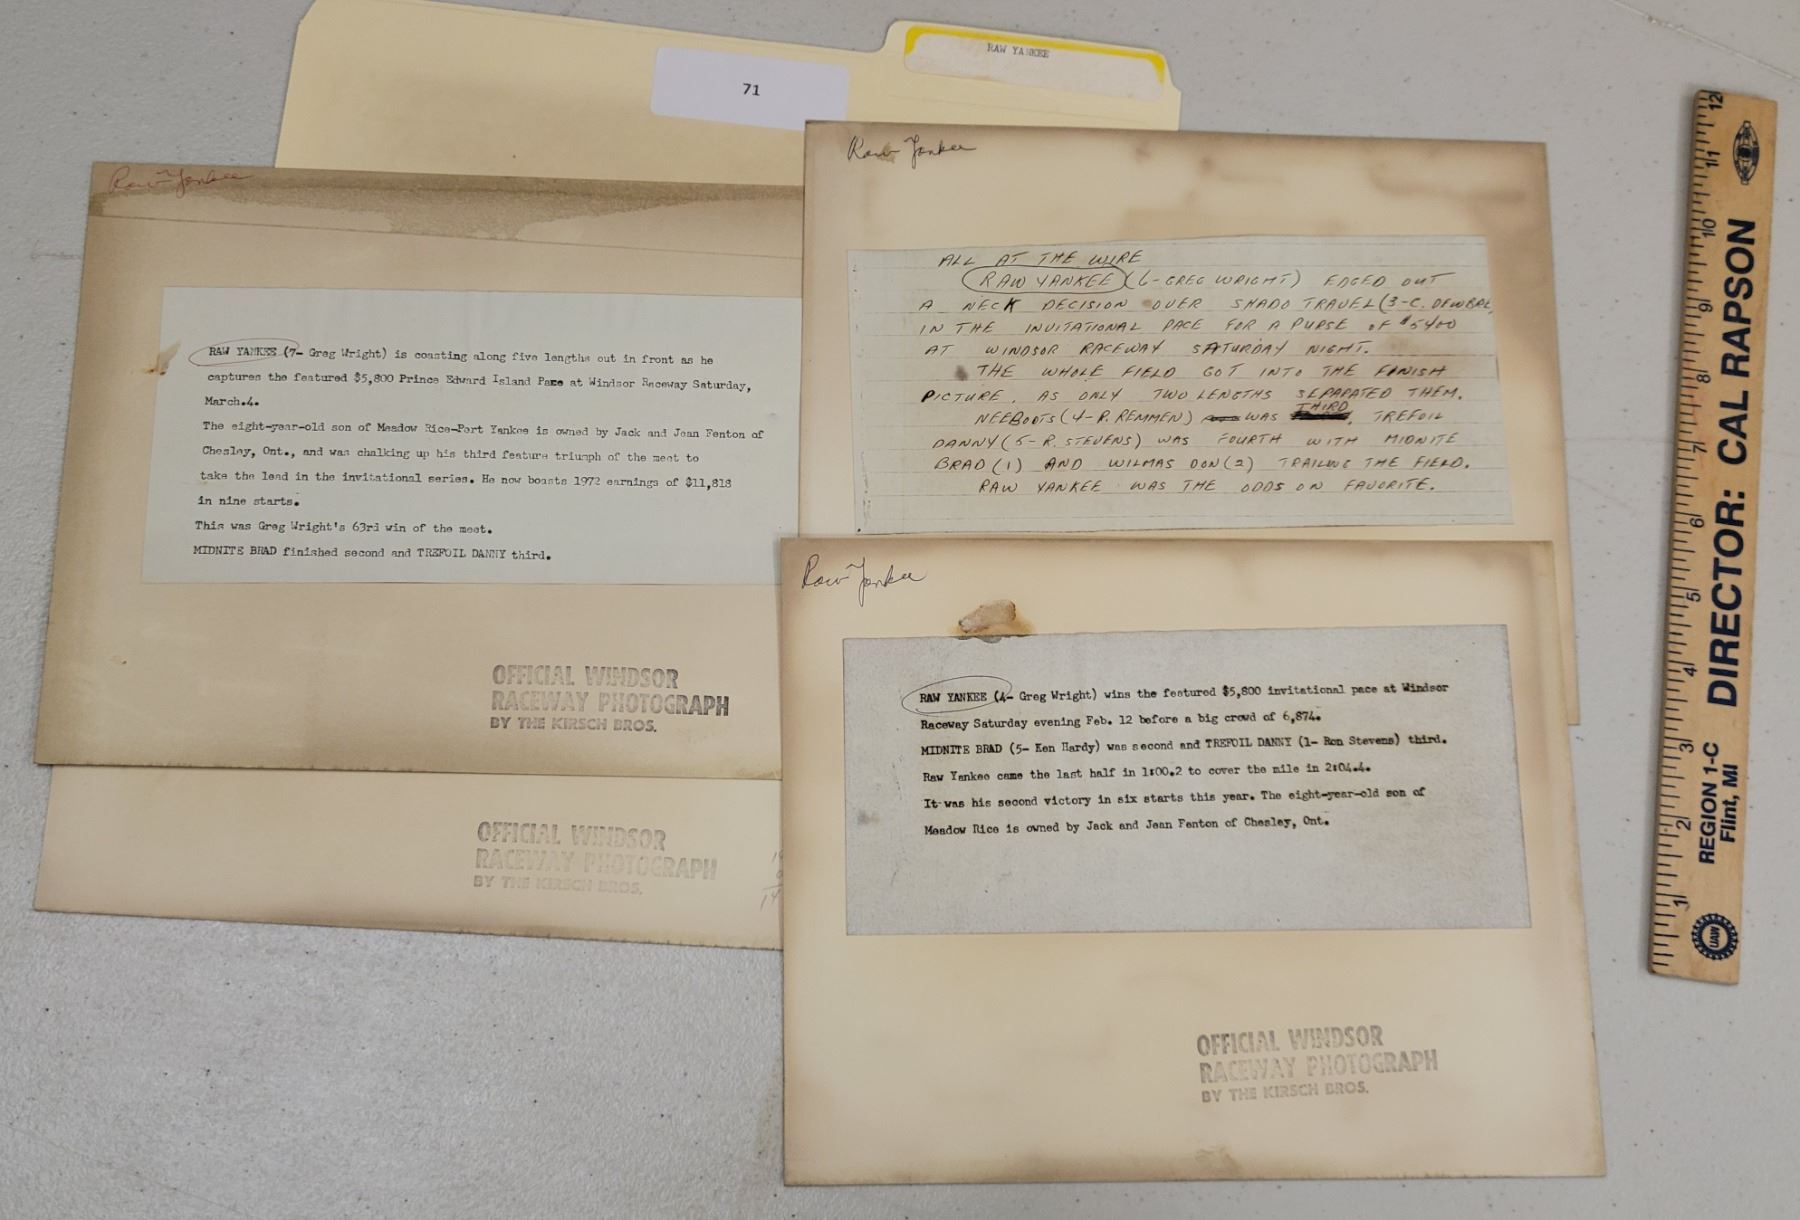 RAW YANKEE
71
Raw Yankee
RAW YANKEE (7- Greg Wright) is coasting along five lengths out in front as he
captures the featured $5,800 Prince Edward Island Pace at Windsor Raceway Saturday,
March.4.
The eight-year-old son of Meadow Rice-Port Yankee is owned by Jack and Jean Fenton of
Chesley, Ont., and was chalking up his third feature triumph of the meet to
take the lead in the invitational series. He now boasts 1972 earnings of $11,818
in nine starts.
This was Greg Wright's 63rd win of the meet.
MIDNITE BRAD finished second and TREFOIL DANNY third.
OFFICIAL WINDSOR
RACEWAY PHOTOGRAPH
BY THE KIRSCH BROS.
OFFICIAL WINDSOR
RACEWAY PHOTOGRAPH
BY THE KIRSCH BROS.
Raw Yankee
ALL AT THE WIRE
RAW YANKEE (6-GREG WRIGHT) EDGED OUT
A NECK DECISION OVER SHADO TRAVEL (3-C.
IN THE INVITATIONAL PACE FOR A PURSE OF $5400
AT WINDSOR RACEWAY SATURDAY NIGHT.
THE WHOLE FIELD GOT INTO THE FINISH
PICTURE, AS ONLY TWO LENGTHS SEPARATED THEM.
NEEBOOTS (4-R. REMMEN) WAS THIRD, TREFOIL
DANNY (5-R. STEVENS) WAS FOURTH WITH MIDNITE
BRAD (1) AND WILMAS DON (2) TRAILING THE FIELD.
RAW YANKEE WAS THE ODDS ON FAVORITE.
Raw Yankee
RAW YANKEE (4- Greg Wright) wins the featured $5,800 invitational pace at Windsor
Raceway Saturday evening Feb. 12 before a big crowd of 6,874.
MIDNITE BRAD (5- Ken Hardy) was second and TREFOIL DANNY (1- Ron Stevens) third.
Raw Yankee came the last half in 1:00.2 to cover the mile in 2:04.4.
It was his second victory in six starts this year. The eight-year-old son of
Meadow Rice is owned by Jack and Jean Fenton of Chesley, Ont.
OFFICIAL WINDSOR
RACEWAY PHOTOGRAPH
BY THE KIRSCH BROS.
1 2 3 4 5 6 7 8 9 10 11 12
UAW
REGION 1-C
Flint, MI
DIRECTOR: CAL RAPSON